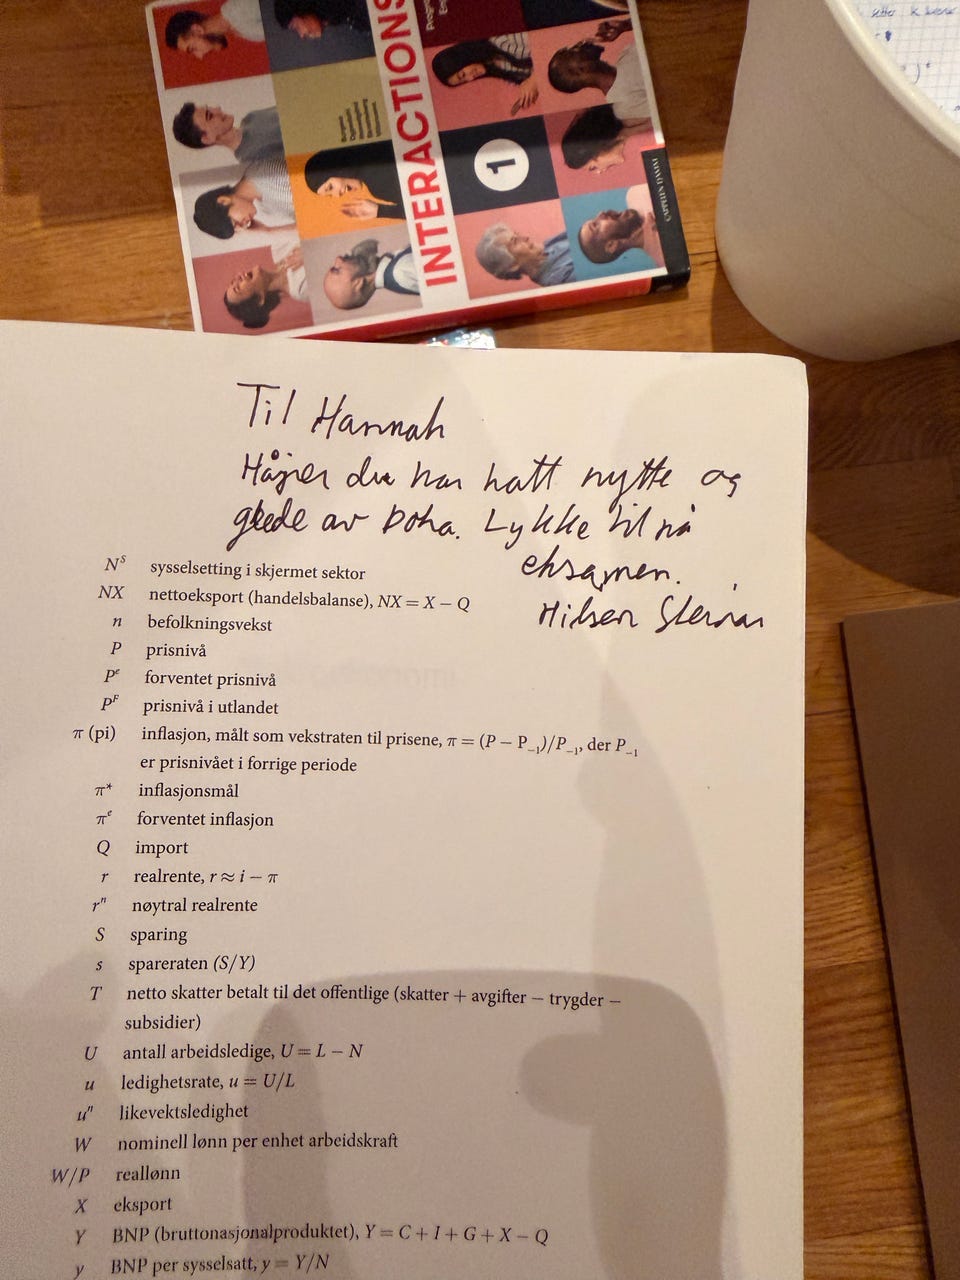 INTERACTIONS
1
CAPPELEN DAMM
Til Hannah
Håper du har hatt nytte og
glede av boka. Lykke til på
eksamen.
Hilsen Steinar
N^S sysselsetting i skjermet sektor
NX nettoeksport (handelsbalanse), NX = X – Q
n befolkningsvekst
P prisnivå
P^e forventet prisnivå
P^F prisnivå i utlandet
π (pi) inflasjon, målt som vekstraten til prisene, π = (P – P_–1)/P_–1, der P_–1
er prisnivået i forrige periode
π* inflasjonsmål
π^e forventet inflasjon
Q import
r realrente, r ≈ i – π
r^n nøytral realrente
S sparing
s spareraten (S/Y)
T netto skatter betalt til det offentlige (skatter + avgifter – trygder –
subsidier)
U antall arbeidsledige, U = L – N
u ledighetsrate, u = U/L
u^n likevektsledighet
W nominell lønn per enhet arbeidskraft
W/P reallønn
X eksport
Y BNP (bruttonasjonalproduktet), Y = C + I + G + X – Q
y BNP per sysselsatt, y = Y/N